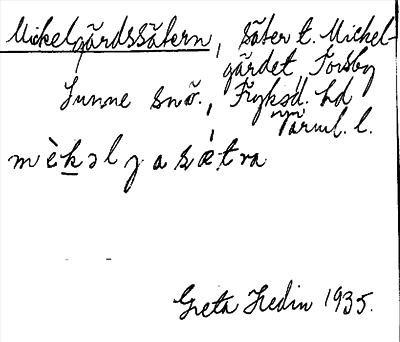 Mickelgårdssätern, säter t. Mickel-
gårdet, Torsby
Sunne snö., Fryksd. hd
Värml. l.
mèk̲əlgasǽtra
Greta Hedin 1935.